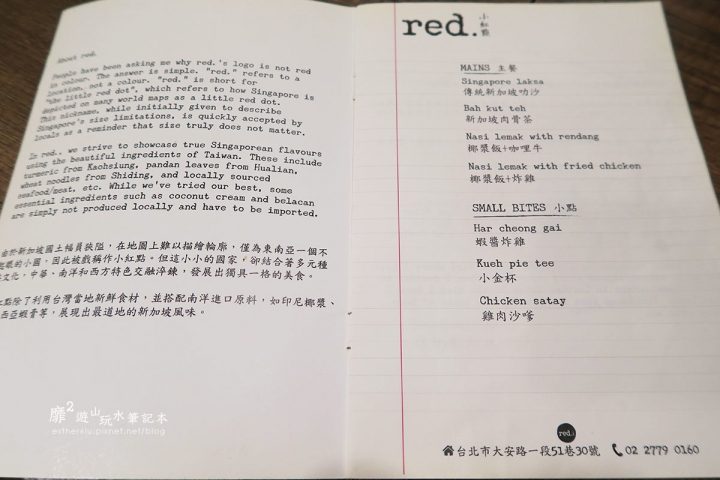 About red.
People have been asking me why red.'s logo is not red
in colour. The answer is simple. "red." refers to a
location, not a colour. "red." is short for
"the little red dot", which refers to how Singapore is
depicted on many world maps as a little red dot.
This nickname, while initially given to describe
Singapore's size limitations, is quickly accepted by
locals as a reminder that size truly does not matter.
In red., we strive to showcase true Singaporean flavours
using the beautiful ingredients of Taiwan. These include
turmeric from Kaohsiung, pandan leaves from Hualian,
wheat noodles from Shiding, and locally sourced
seafood/meat, etc. While we've tried our best, some
essential ingredients such as coconut cream and belacan
are simply not produced locally and have to be imported.
由於新加坡國土幅員狹隘，在地圖上難以描繪輪廓，僅為東南亞一個不
起眼的小國，因此被戲稱作小紅點。但這小小的國家，卻結合著多元種
文化，中華、南洋和西方特色交融淬鍊，發展出獨具一格的美食。
點除了利用台灣當地新鮮食材，並搭配南洋進口原料，如印尼椰漿、
西亞蝦膏等，展現出最道地的新加坡風味。
靡2遊山玩水筆記本
estherxiu.pixnet.net/blog
red. 小紅點
MAINS 主餐
Singapore laksa
傳統新加坡叻沙
Bah kut teh
新加坡肉骨茶
Nasi lemak with rendang
椰漿飯+咖哩牛
Nasi lemak with fried chicken
椰漿飯+炸雞
SMALL BITES 小點
Har cheong gai
蝦醬炸雞
Kueh pie tee
小金杯
Chicken satay
雞肉沙嗲
red.
台北市大安路一段51巷30號 02 2779 0160